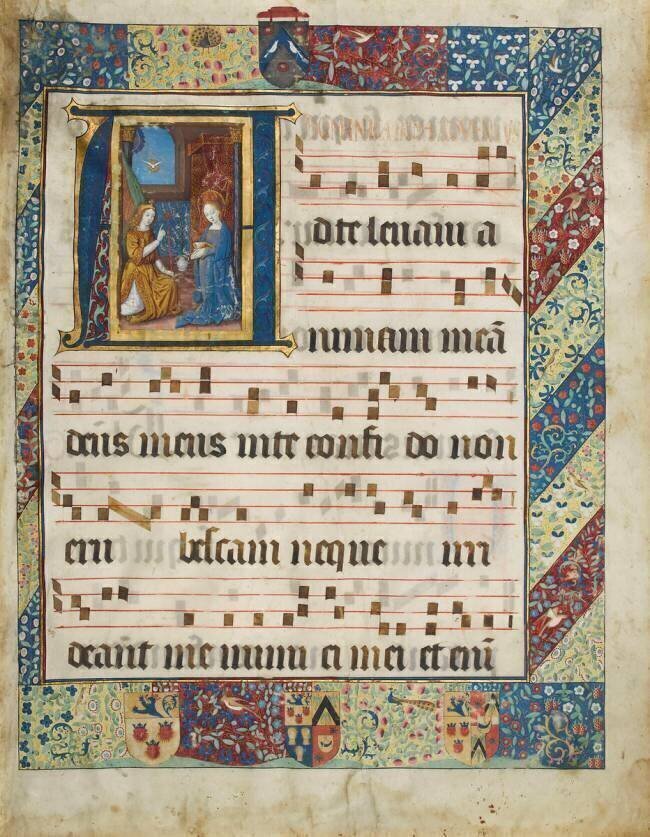 Ad te leuaui a
nimam meā
deus meus in te confi do non
eru bescam neque irri
deant me inimi ci mei et enī